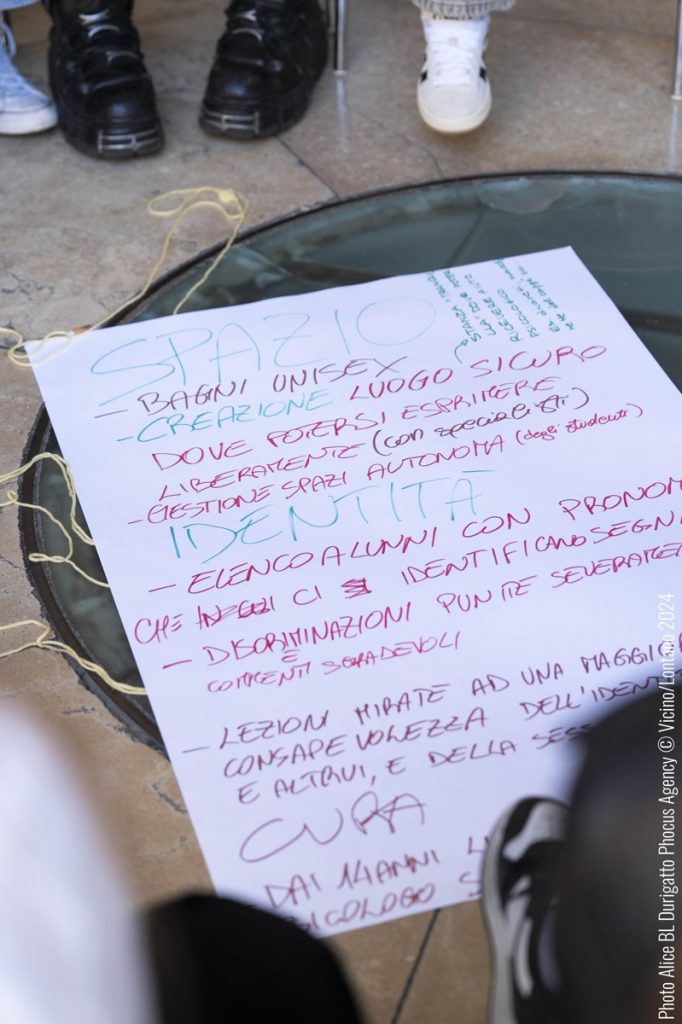 SPAZIO
STANZA TRANQUIL
LA DOVE POTER
RICEVERE AIUTO
PSICOLOGICO
- BAGNI UNISEX
- CREAZIONE LUOGO SICURO
DOVE POTERSI ESPRIMERE
LIBERAMENTE (con specialisti)
- GESTIONE SPAZI AUTONOMA (degli studenti)
IDENTITÀ
- ELENCO ALUNNI CON PRONOM
CHE CI IDENTIFICANO SEGN
- DISCRIMINAZIONI PUNITE SEVERAMEN
E
COMMENTI SGRADEVOLI
- LEZIONI MIRATE AD UNA MAGGIOR
CONSAPEVOLEZZA DELL'IDENT
E ALTRUI, E DELLA SESS
CURA
DAI 14 ANNI
PSICOLOGO S
Photo Alice BL Durigatto Phocus Agency © Vicino/Lontano 2024